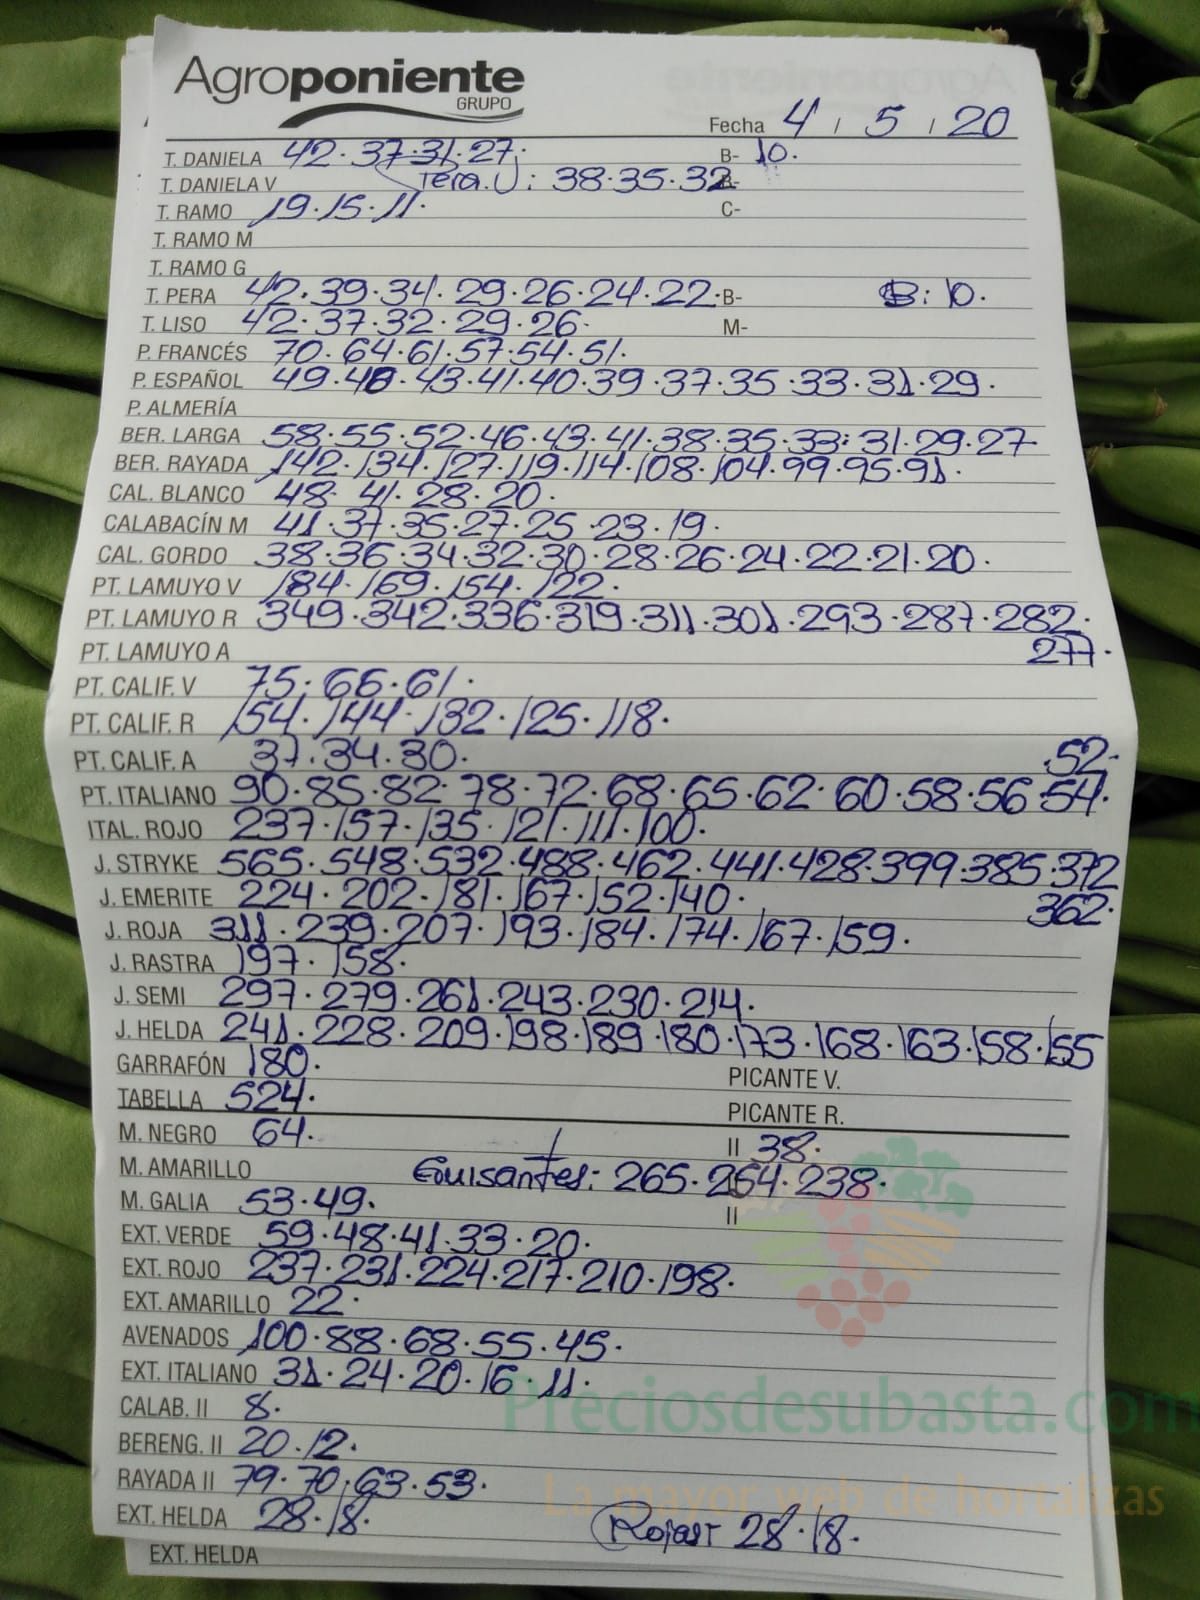 Agroponiente
GRUPO
Fecha 4 / 5 / 20
T. DANIELA 42·37·31·27· B- 10·
T. DANIELA V Pera.V: 38·35·32
T. RAMO 19·15·11· C-
T. RAMO M
T. RAMO G
T. PERA 42·39·34·29·26·24·22· B- B: 10·
T. LISO 42·37·32·29·26· M-
P. FRANCÉS 70·64·61·57·54·51·
P. ESPAÑOL 49·48·43·41·40·39·37·35·33·31·29·
P. ALMERÍA
BER. LARGA 58·55·52·46·43·41·38·35·33·31·29·27
BER. RAYADA 142·134·127·119·114·108·104·99·95·91·
CAL. BLANCO 48·41·28·20·
CALABACÍN M 41·37·35·27·25·23·19·
CAL. GORDO 38·36·34·32·30·28·26·24·22·21·20·
PT. LAMUYO V 184·169·154·122·
PT. LAMUYO R 349·342·336·319·311·301·293·287·282·
PT. LAMUYO A 277·
PT. CALIF. V 75·66·61·
PT. CALIF. R 154·144·132·125·118·
PT. CALIF. A 37·34·30· 52·
PT. ITALIANO 90·85·82·78·72·68·65·62·60·58·56·54·
ITAL. ROJO 237·157·135·121·111·100·
J. STRYKE 565·548·532·488·462·441·428·399·385·372
J. EMERITE 224·202·181·167·152·140· 362·
J. ROJA 311·239·207·193·184·174·167·159·
J. RASTRA 197·158·
J. SEMI 297·279·261·243·230·214·
J. HELDA 241·228·209·198·189·180·173·168·163·158·155
GARRAFÓN 180· PICANTE V.
TABELLA 524· PICANTE R.
M. NEGRO 64· II 38·
M. AMARILLO Guisantes: 265·264·238·
M. GALIA 53·49· II
EXT. VERDE 59·48·41·33·20·
EXT. ROJO 237·231·224·217·210·198·
EXT. AMARILLO 22·
AVENADOS 100·88·68·55·45·
EXT. ITALIANO 31·24·20·16·11·
CALAB. II 8·
Preciosdesubasta.com
BERENG. II 20·12·
RAYADA II 79·70·63·53·
La mayor web de hortalizas
EXT. HELDA 28·18· 28·18·
EXT. HELDA